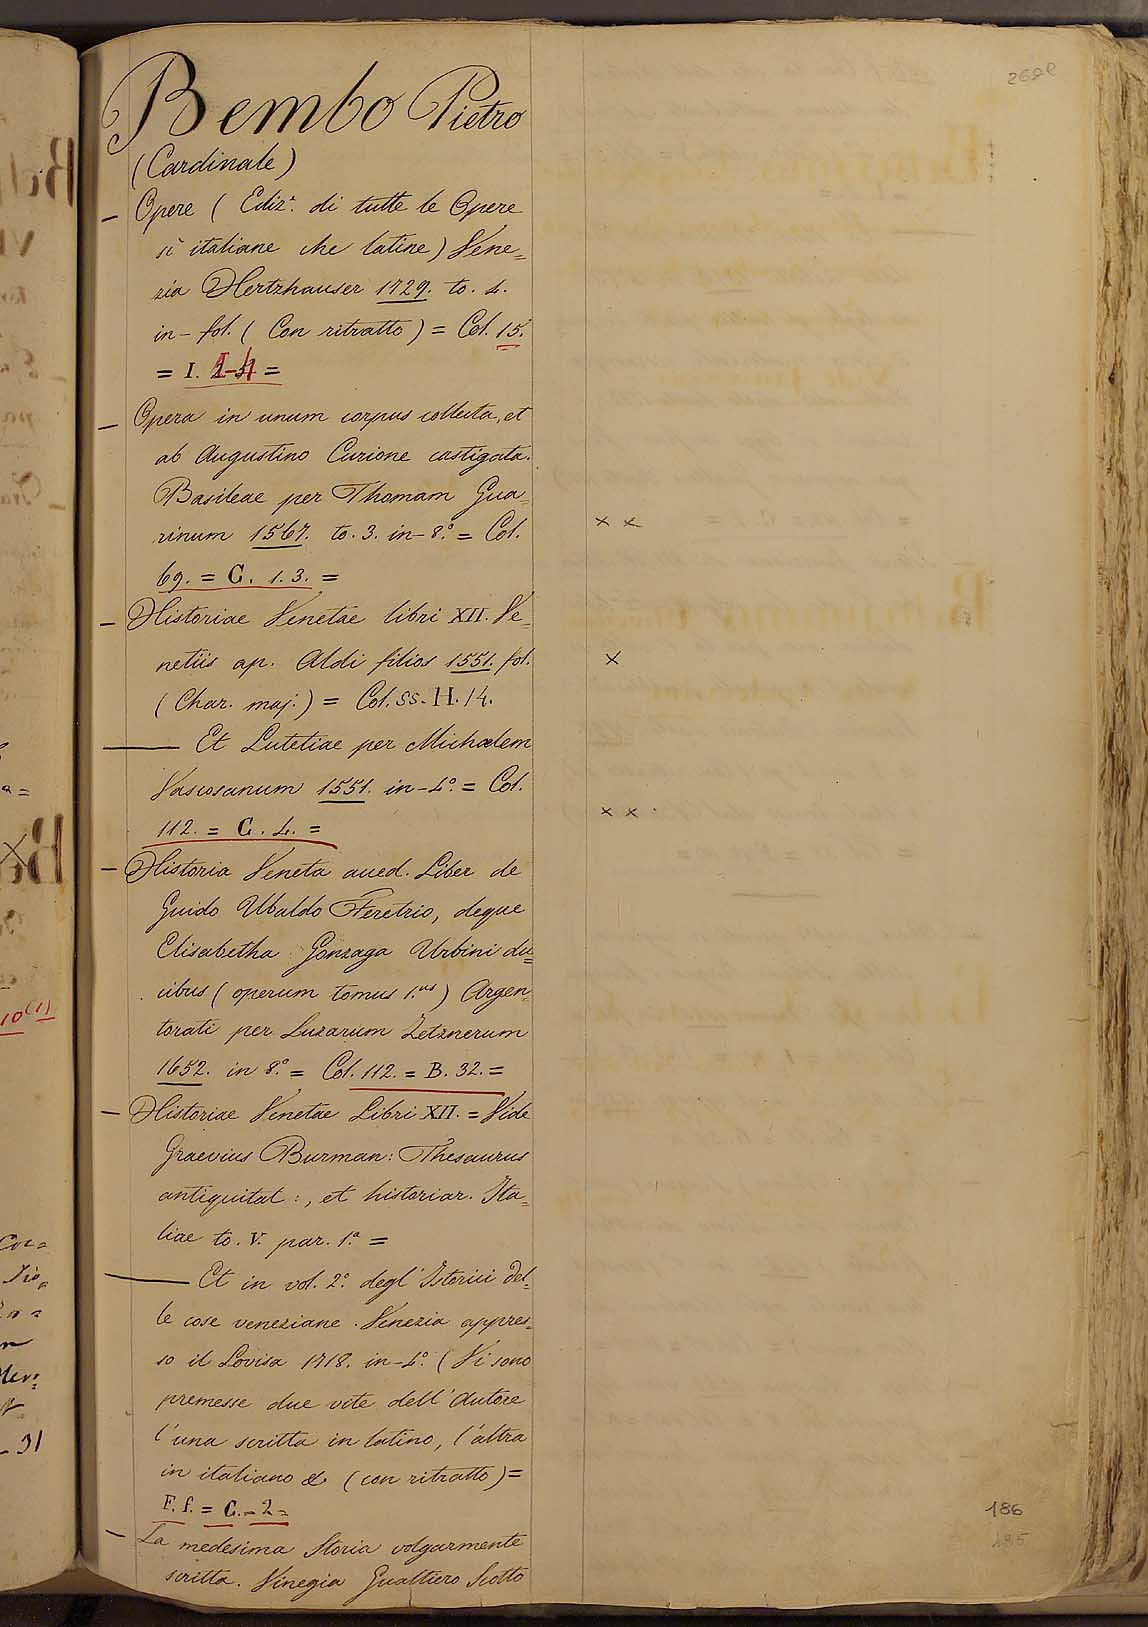 268c
Bembo Pietro
(Cardinale)
— Opere (Ediz.e di tutte le Opere
sì italiane che latine) Vene=
zia Hertzhauser 1729. to. 4.
in-fol. (Con ritratto) = Col. 15.
= I. 1-4 =
— Opera in unum corpus collecta, et
ab Augustino Curione castigata.
Basileae per Thomam Gua=
rinum 1567. to. 3. in-8.° = Col. × ×
69. = C. 1. 3. =
— Historiae Venetae libri XII. Ve=
netiis ap. Aldi filios 1551. fol. ×
(Char. maj.) = Col. SS. H. 14.
—— Et Lutetiae per Michaelem
Vascosanum 1551. in-4.° = Col.
112. = C. 4. = × ×
— Historia Veneta aued. Liber de
Guido Ubaldo Feretrio, deque
Elisabetha Gonzaga Urbini du=
cibus (operum tomus 1.us) Argen=
torati per Lazarum Zetznerum
1652. in 8.° = Col. 112. = B. 32. =
— Historiae Venetae Libri XII. = Vide
Graevius Burman: Thesaurus
antiquitat:, et historiar. Ita=
liae to. V. par. 1.a =
—— Et in vol. 2.° degl'Istorici del=
le cose veneziane. Venezia appres=
so il Lovisa 1718. in-4.° (Vi sono
premesse due vite dell'Autore
l'una scritta in latino, l'altra
in italiano & (con ritratto) =
F. f. = C. - 2 =
— La medesima Storia volgarmente
scritta. Vinegia Gualtiero Scotto
186
185
10(1)